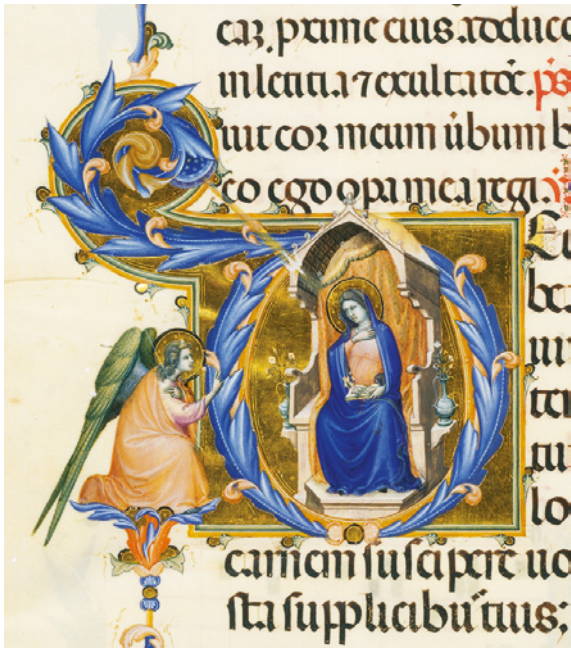 car, prime eius adduce
in letitia ⁊ exultatõe. ps
uit cor meum ũbum b
co ego opera mea regi.
be
ui
ten
tu
lo
carnem suscipere uo
sta supplicibu᷒ tuis;